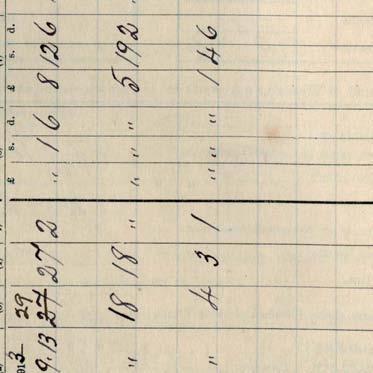 £ s. d. £ s. d.
1913 29
9.13 27 27 2 " 1 6 8 12 6
" 18 18 " " " " 5 19 2
" 4 3 1 " " " 1 4 6